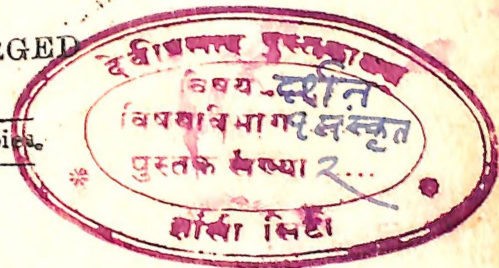 RGED
देवीप्रसाद पुस्तकालय
विषय दर्शन
विषयविभाग १ संस्कृत
पुस्तक संख्या २...
झाँसी सिटी